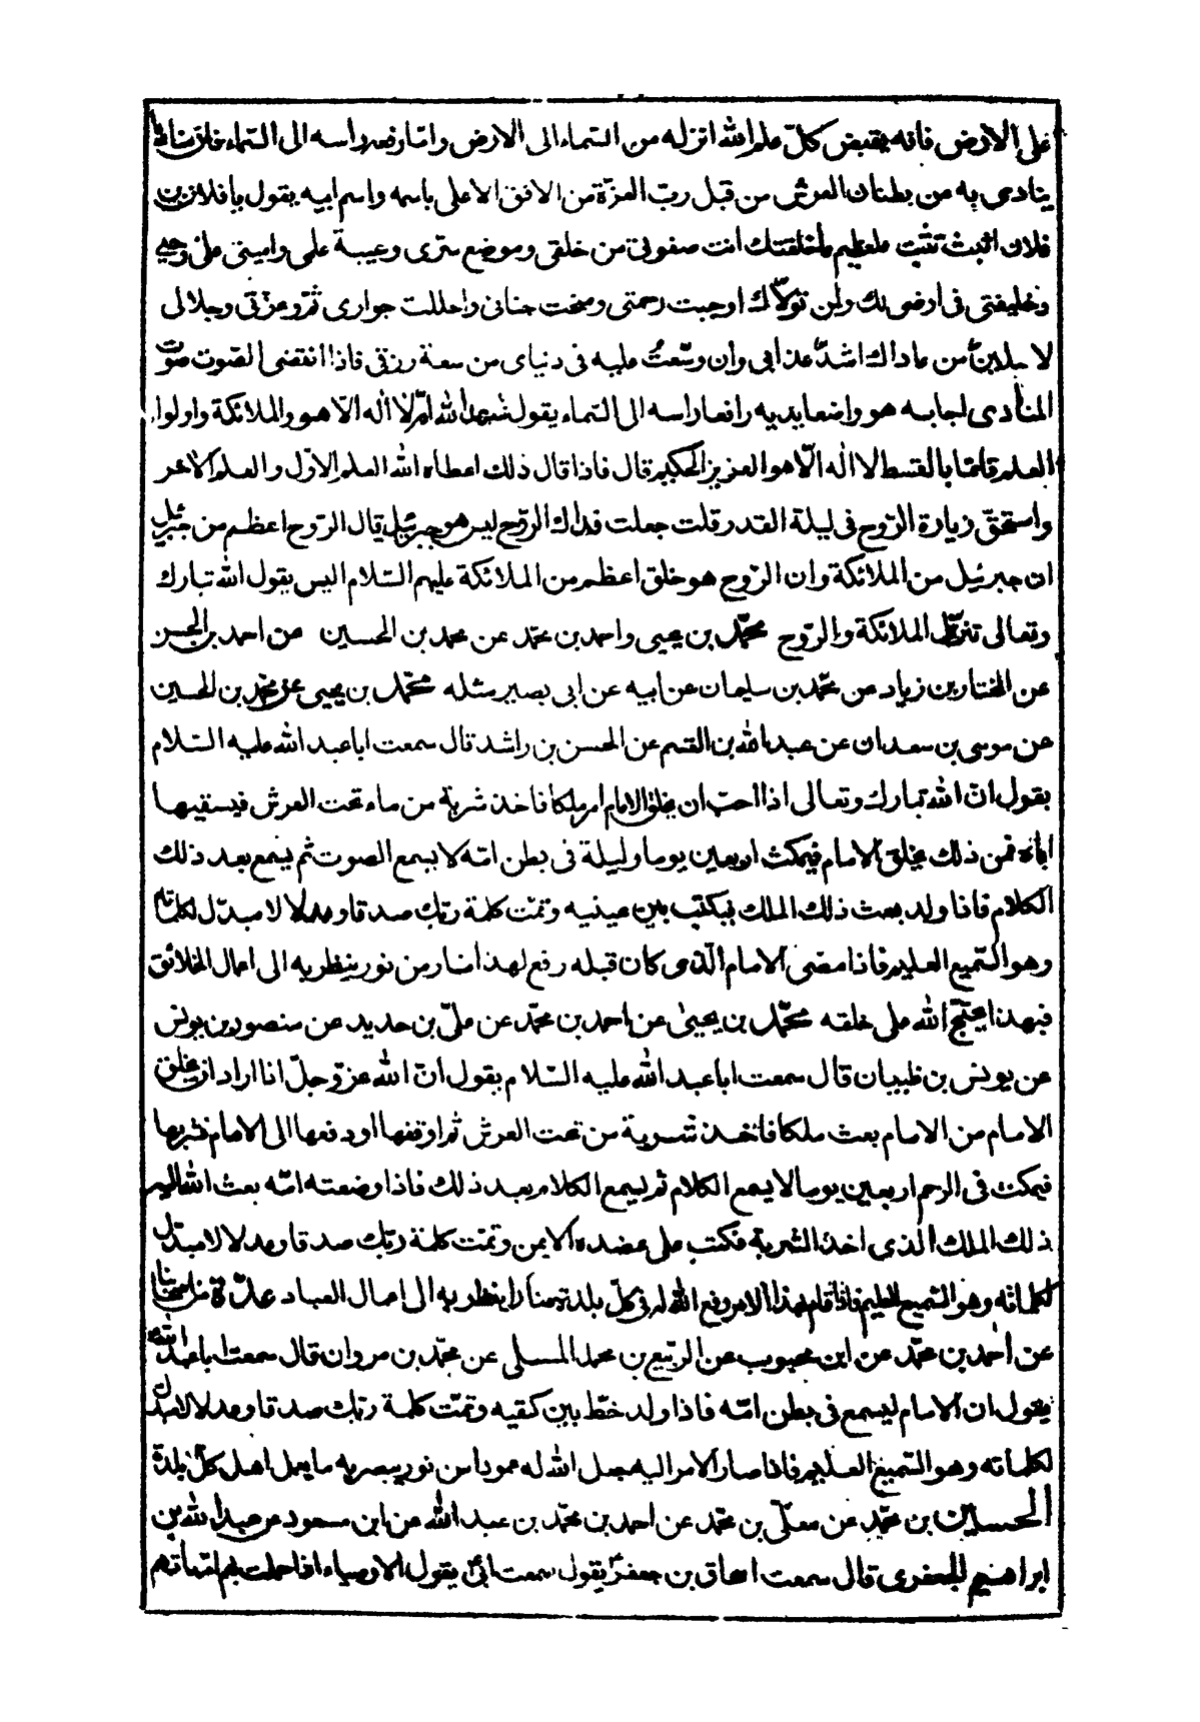 على الارض فانه يقبض كلّ علم لله انزله من السّماء الى الارض وامّا رفعه راسه الى السّماء فان مناديا
ينادى به من بطنان العرش من قبل ربّ العزّة من الافق الاعلى باسمه واسم ابيه يقول يا فلان بن
فلان اثبت تثبت فلعظيم ما خلقتك انت صفوتى من خلقى وموضع سرّى وعيبة علمى وامينى على وحيى
وخليفتى فى ارضى لك ولمن تولّاك اوجبت رحمتى ومنحت جنانى واحللت جوارى ثمّ وعزّتى وجلالى
لاصلينّ من عاداك اشدّ عذابى وان وسّعتُ عليه فى دنياى من سعة رزقى فاذا انقضى الصّوت صوت
المنادى اجابه هو واضعا يديه رافعا راسه الى السّماء يقول شهد الله انّه لا اله الّا هو والملائكة واولوا
العلم قائما بالقسط لا اله الّا هو العزيز الحكيم قال فاذا قال ذلك اعطاه الله العلم الاوّل والعلم الآخر
واستحقّ زيارة الرّوح فى ليلة القدر قلت جعلت فداك الرّوح ليس هو جبرئيل قال الرّوح اعظم من جبرئيل
ان جبرئيل من الملائكة وان الرّوح هو خلق اعظم من الملائكة عليهم السّلام اليس يقول الله تبارك
وتعالى تنزّل الملائكة والرّوح محمّد بن يحيى واحمد بن محمّد عن محمد بن الحسين عن احمد بن الحسن
عن المختار بن زياد عن محمّد بن سليمان عن ابيه عن ابى بصير مثله محمّد بن يحيى عن محمّد بن الحسين
عن موسى بن سعدان عن عبد الله بن القسم عن الحسن بن راشد قال سمعت ابا عبد الله عليه السّلام
يقول انّ الله تبارك وتعالى اذا احبّ ان يخلق الامام امر ملكا فاخذ شربة من ماء تحت العرش فيسقيها
اباه فمن ذلك يخلق الامام فيمكث اربعين يوما وليلة فى بطن امّه لا يسمع الصوت ثم يسمع بعد ذلك
الكلام فاذا ولد بعث ذلك الملك فيكتب بين عينيه وتمّت كلمة ربّك صدقا وعدلا لا مبدّل لكلماته
وهو السّميع العليم فاذا مضى الامام الّذى كان قبله رفع لهذا منار من نور ينظر به الى اعمال الخلائق
فبهذا يحتجّ الله على خلقه محمّد بن يحيىٰ عن احمد بن محمّد عن علىّ بن حديد عن منصور بن يونس
عن يونس بن ظبيان قال سمعت ابا عبد الله عليه السّلام يقول انّ الله عزّ وجلّ اذا اراد ان يخلق
الامام من الامام بعث ملكا فاخذ شربة من تحت العرش ثم اوقفها او دفعها الى الامام فشربها
فيمكث فى الرحم اربعين يوما لا يسمع الكلام ثم يسمع الكلام بعد ذلك فاذا وضعته امّه بعث الله اليه
ذلك الملك الّذى اخذ الشربة فكتب على عضده الايمن وتمّت كلمة ربّك صدقا وعدلا لا مبدّل
لكلماته وهو السّميع العليم فاذا قام بهذا الامر رفع الله له فى كلّ بلدة منارا ينظر به الى اعمال العباد عدّة من اصحابنا
عن احمد بن محمّد عن ابن محبوب عن الربّيع بن محمد المسلى عن محمّد بن مروان قال سمعت ابا عبد الله
يقول ان الامام ليسمع فى بطن امّه فاذا ولد خطّ بين كتفيه وتمّت كلمة ربّك صدقا وعدلا لا مبدّل
لكلماته وهو السّميع العليم فاذا صار الامر اليه جعل الله له عمودا من نور يبصر به ما يعمل اهل كلّ بلدة
الحسين بن محمّد عن معلّى بن محمّد عن احمد بن محمّد بن عبد الله عن ابن مسعود عن عبد الله بن
ابراهيم الجعفرى قال سمعت اسحاق بن جعفر يقول سمعت ابى يقول الاوصياء اذا حملت بهم امّهاتهم